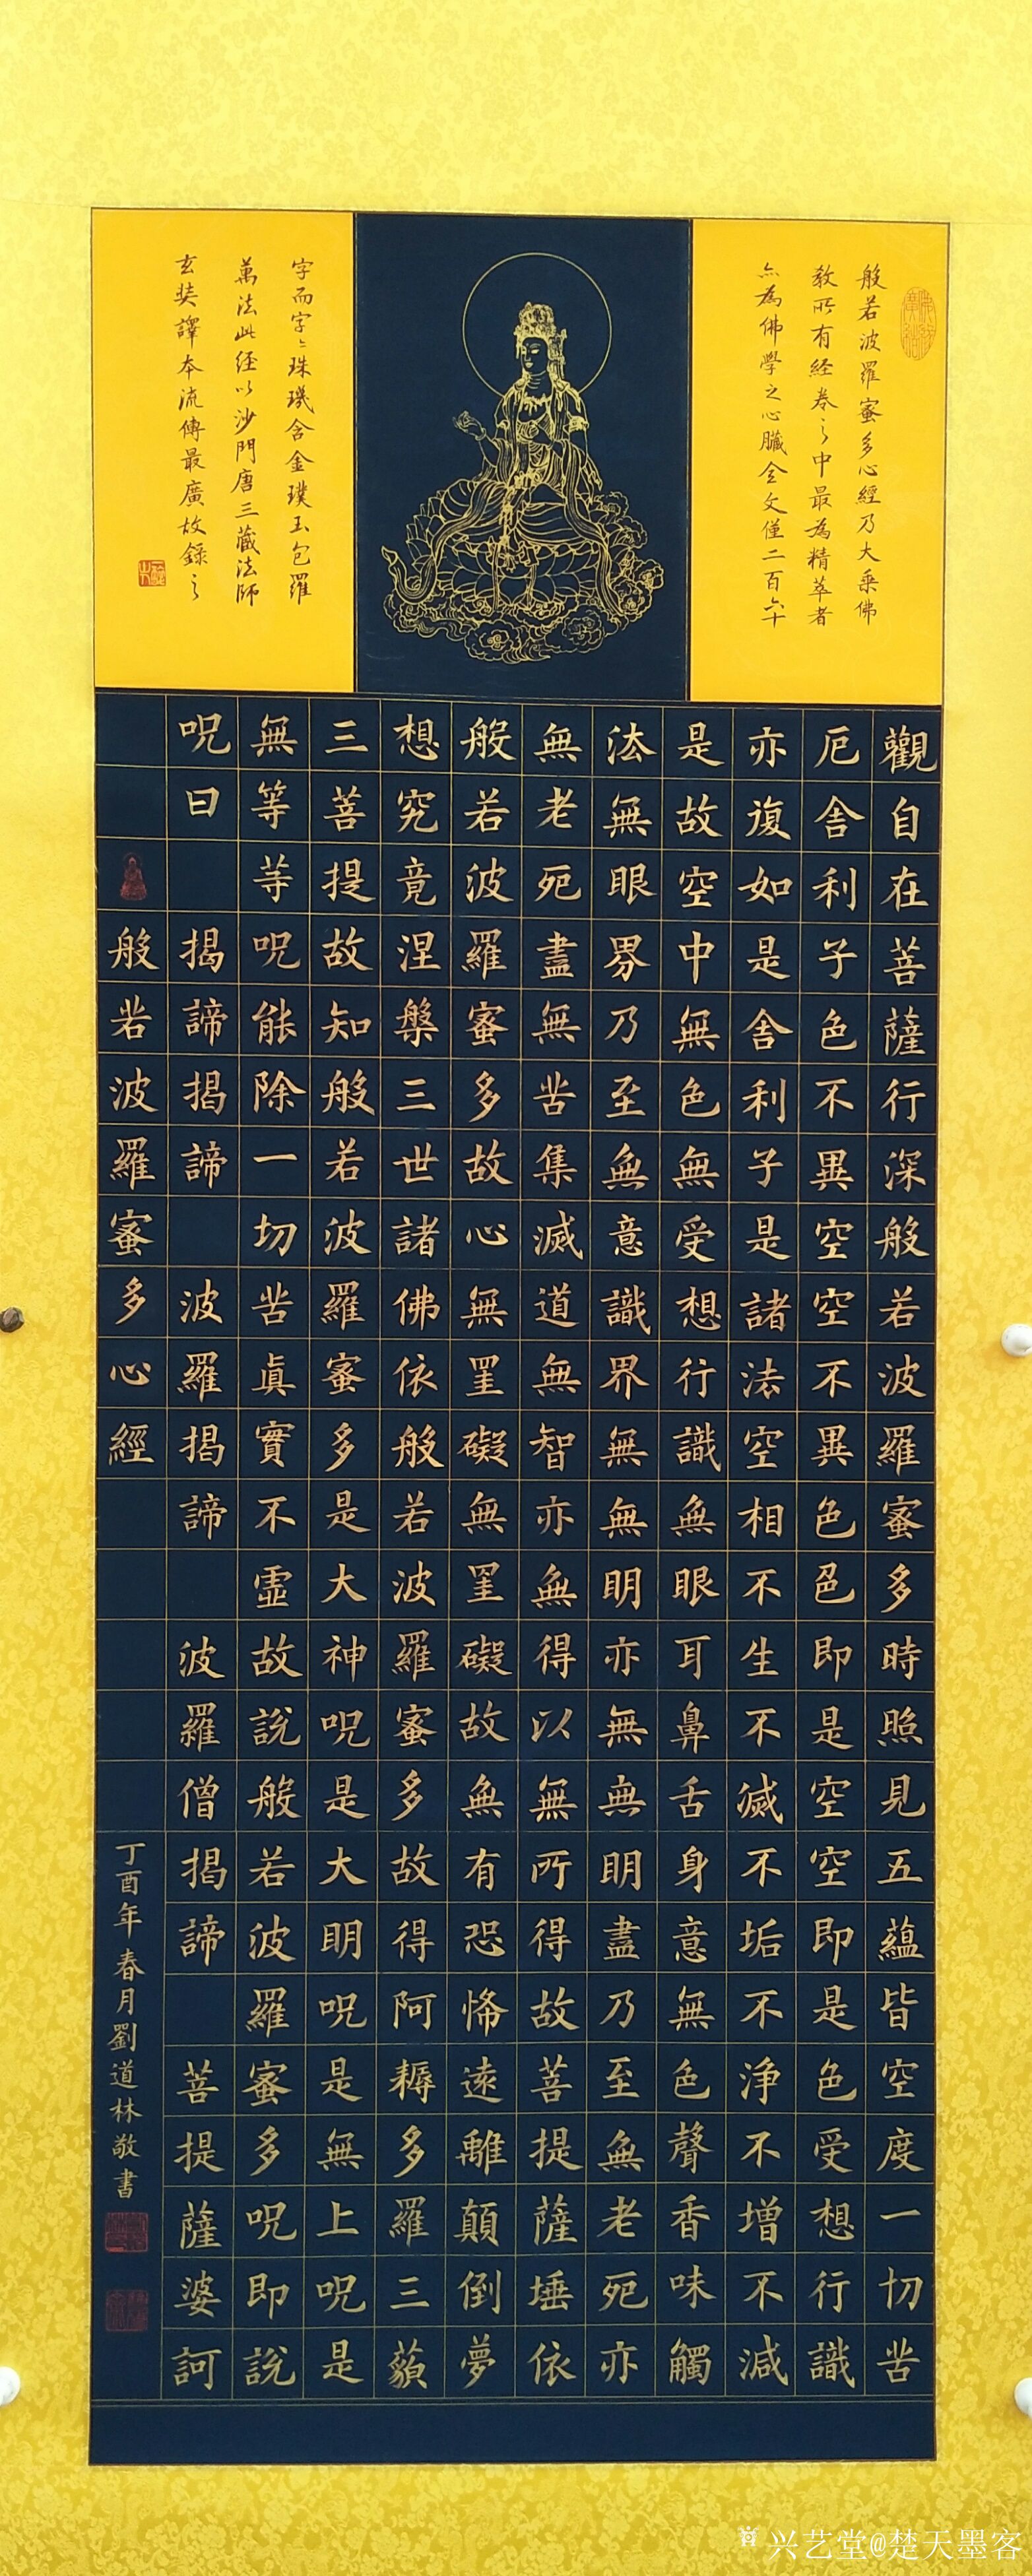 般若波羅蜜多心經乃大乘佛
教所有経卷之中最為精萃者
亦為佛學之心臟全文僅二百六十
字而字〻珠璣含金璞玉包羅
萬法此経以沙門唐三藏法師
玄奘譯本流傳最廣故錄之
觀自在菩薩行深般若波羅蜜多時照見五蘊皆空度一切苦
厄舍利子色不異空空不異色色即是空空即是色受想行識
亦復如是舍利子是諸法空相不生不滅不垢不淨不增不減
是故空中無色無受想行識無眼耳鼻舌身意無色聲香味觸
法無眼界乃至無意識界無無明亦無無明盡乃至無老死亦
無老死盡無苦集滅道無智亦無得以無所得故菩提薩埵依
般若波羅蜜多故心無罣礙無罣礙故無有恐怖遠離顛倒夢
想究竟涅槃三世諸佛依般若波羅蜜多故得阿耨多羅三藐
三菩提故知般若波羅蜜多是大神呪是大明呪是無上呪是
無等等呪能除一切苦真實不虛故說般若波羅蜜多呪即說
呪曰 揭諦揭諦 波羅揭諦 波羅僧揭諦 菩提薩婆訶
般若波羅蜜多心經
丁酉年春月劉道林敬書
兴艺堂@楚天墨客